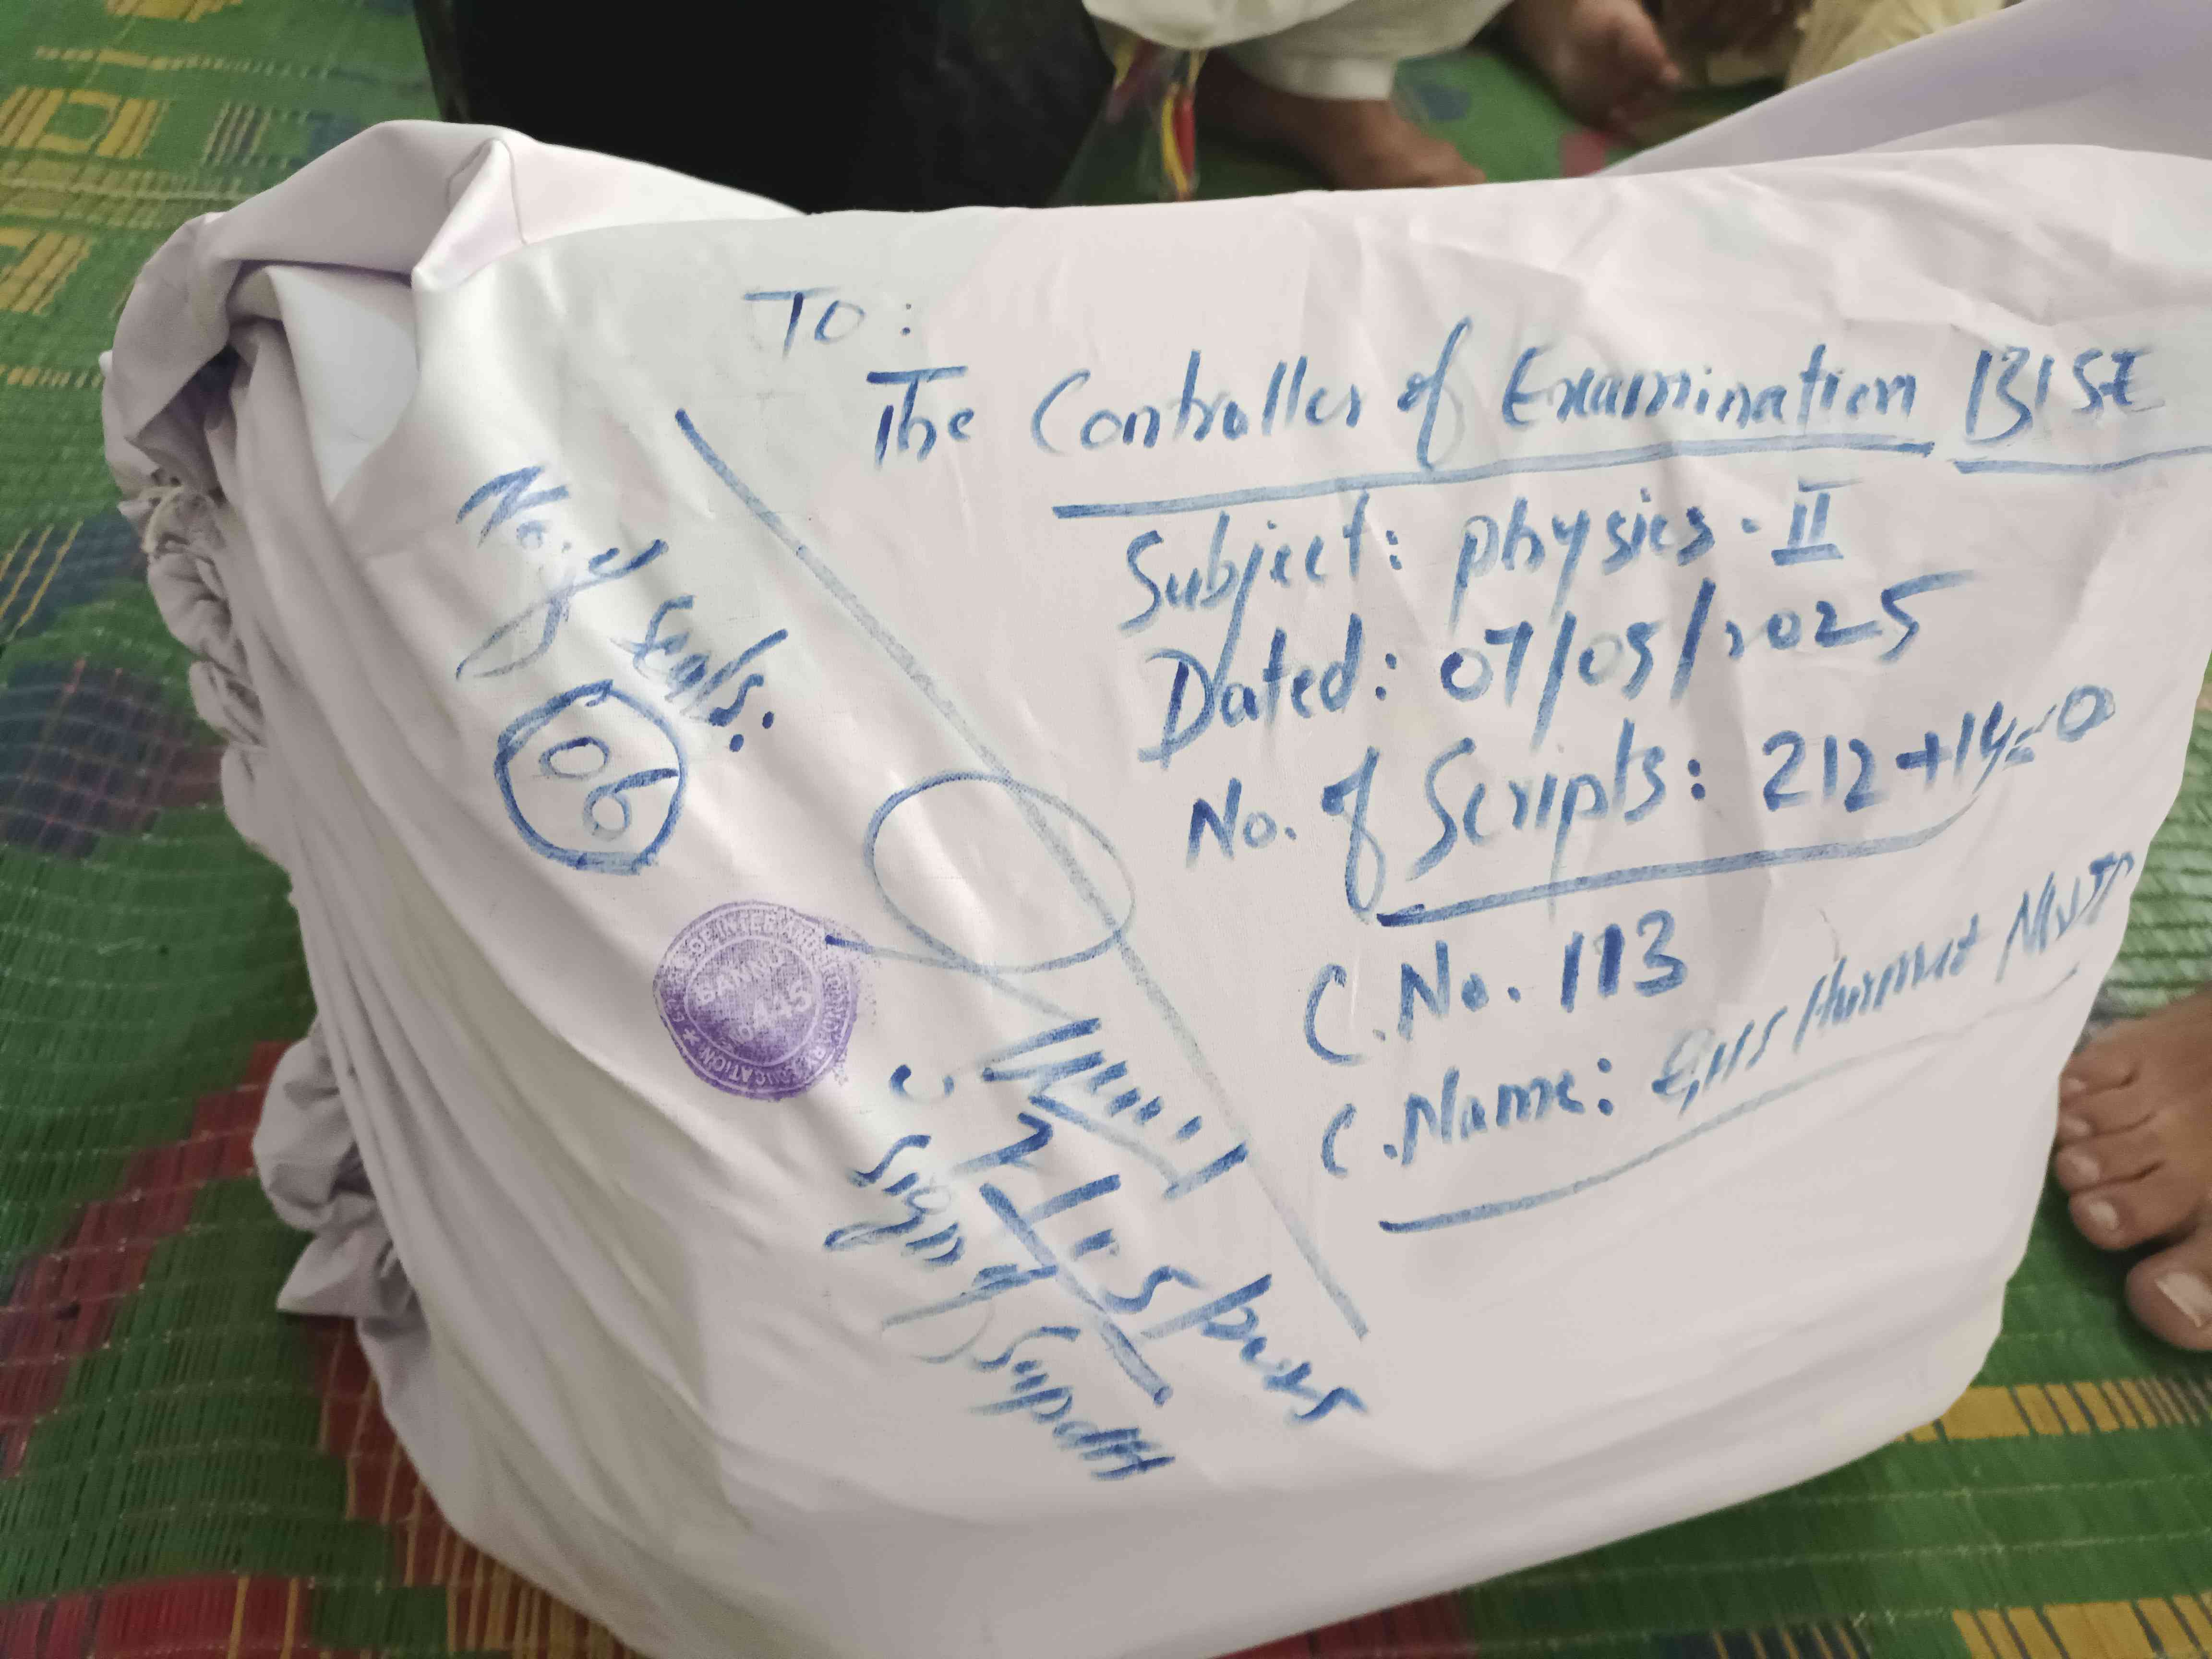 To:
The Controller of Examination BISE
Subject: physics-II
Dated: 07/05/2025
No. of Scripts: 212+14=0
C.No. 113
C.Name: GHS Hurmat
No. of
Seals:
06
BANNU
445
EDUCATION
Sign of Supdtt